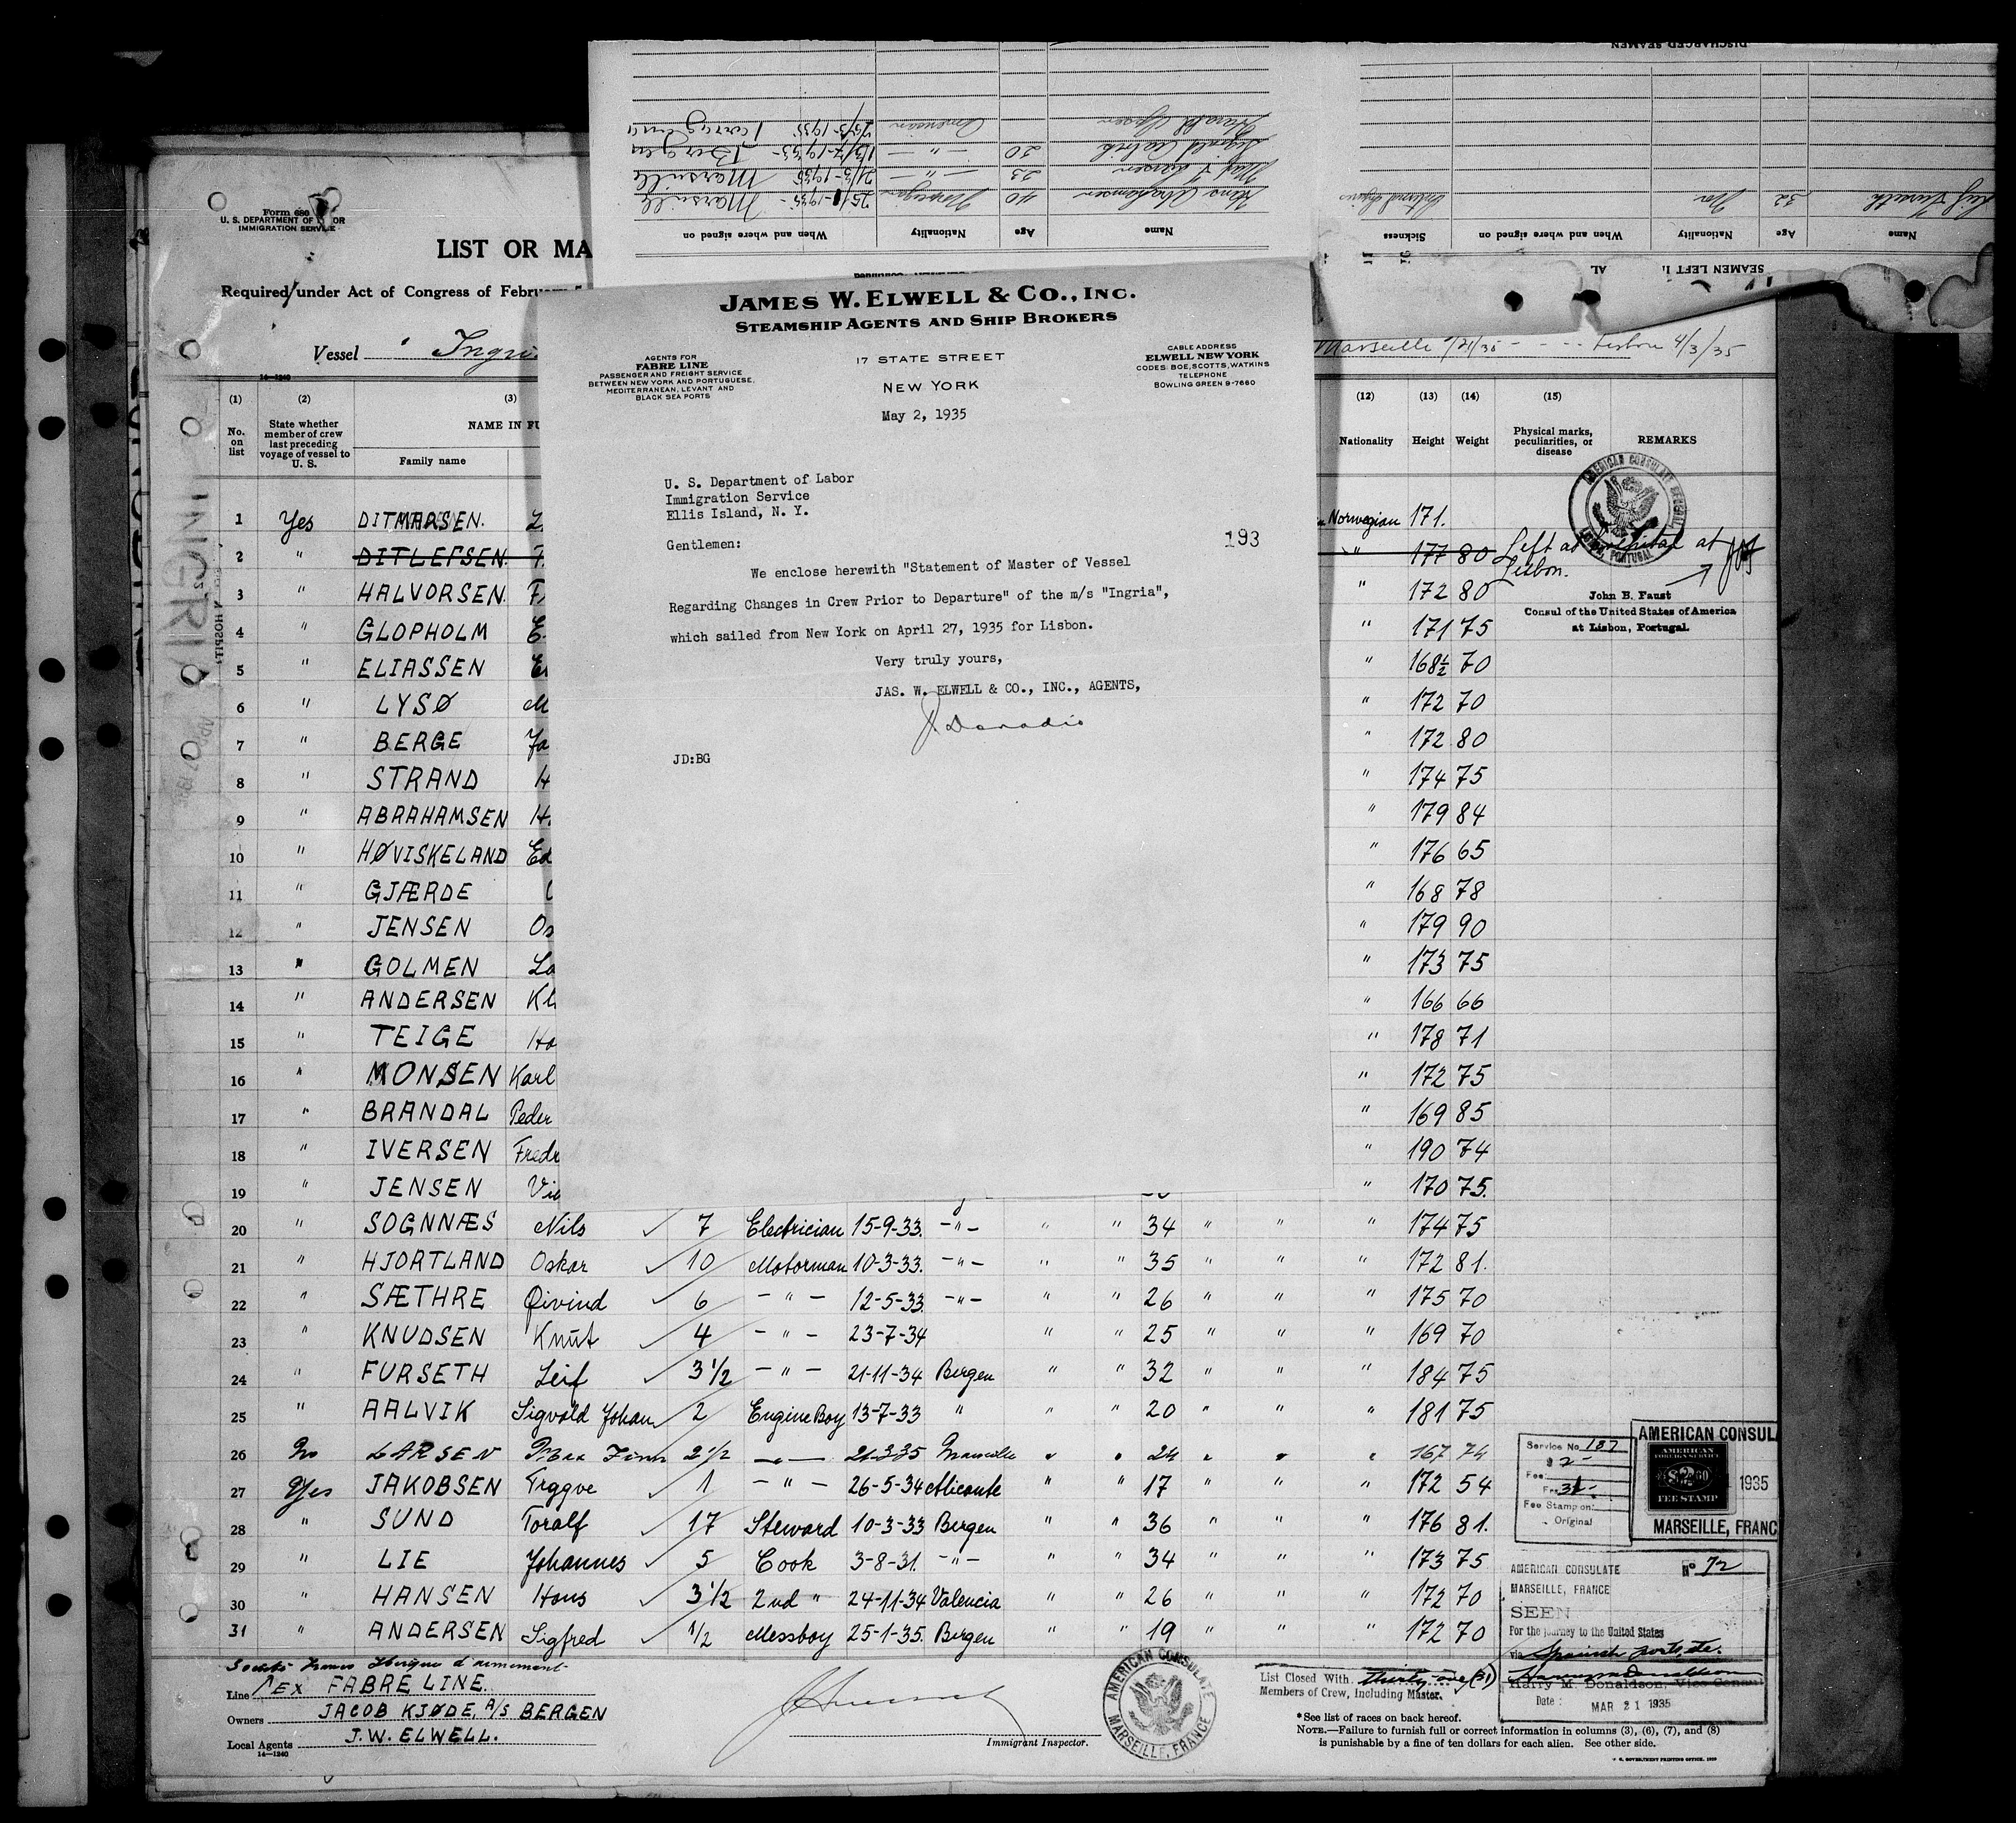 DISCHARGED SEAMEN
Name Age Nationality When and where signed on
Hans Abrahamsen 40 Norwegian 25/1-1935 - Marseille
Max F Larsen 23 — " — 21/3-1935 Marseille
Sigvald Aalvik 20 — " — 13/7-1933- Bergen
Harald
American
SEAMEN LEFT I AL
Name Age Nationality When and where signed on Sickness
Leif Furseth 32 Nor
Form 680
U. S. DEPARTMENT OF OR
IMMIGRATION SERVICE
LIST OR MA
Required under Act of Congress of February 5
Vessel Ingri
Marseille 3/21/35 - - - Lisbon 4/3/35
14—1240
JAMES W. ELWELL & CO., INC.
STEAMSHIP AGENTS AND SHIP BROKERS
AGENTS FOR
FABRE LINE
PASSENGER AND FREIGHT SERVICE
BETWEEN NEW YORK AND PORTUGUESE,
MEDITERRANEAN, LEVANT AND
BLACK SEA PORTS
17 STATE STREET
NEW YORK
CABLE ADDRESS
ELWELL NEW YORK
CODES: BOE, SCOTTS, WATKINS
TELEPHONE
BOWLING GREEN 9-7660
May 2, 1935
U. S. Department of Labor
Immigration Service
Ellis Island, N. Y.
193
Gentlemen:
We enclose herewith "Statement of Master of Vessel
Regarding Changes in Crew Prior to Departure" of the m/s "Ingria",
which sailed from New York on April 27, 1935 for Lisbon.
Very truly yours,
JAS. W. ELWELL & CO., INC., AGENTS,
J. Donadio
JD:BG
(1) (2) (3) (12) (13) (14) (15)
No. on list
State whether member of crew last preceding voyage of vessel to U. S.
NAME IN FU
Family name
Nationality Height Weight
Physical marks, peculiarities, or disease
REMARKS
1 Yes DITMARSEN. Norwegian 171.
2 " DITLEFSEN. " 177 80 Left at hospital at Lisbon.
3 " HALVORSEN. " 172 80
4 " GLOPHOLM E " 171 75
5 " ELIASSEN " 168½ 70
6 " LYSØ M " 172 70
7 " BERGE Ja " 172 80
8 " STRAND H " 174 75
9 " ABRAHAMSEN H " 179 84
10 " HØVISKELAND Ed " 176 65
11 " GJÆRDE " 168 78
12 " JENSEN Os " 179 90
13 " GOLMEN La " 173 75
14 " ANDERSEN Kl " 166 66
15 " TEIGE Ha " 178 71
16 " MONSEN Karl " 172 75
17 " BRANDAL Peder " 169 85
18 " IVERSEN Fredr " 190 74
19 " JENSEN Vi " 170 75.
20 " SOGNNÆS Nils ✓ 7 Electrician 15-9-33. -"- " " 34 " " " 174 75
21 " HJORTLAND Oskar ✓ 10 Motorman 10-3-33. -"- " " 35 " " " 172 81.
22 " SÆTHRE Øivind ✓ 6 - " - 12-5-33. -"- " " 26 " " " 175 70
23 " KNUDSEN Knut ✓ 4 - " - 23-7-34 " " 25 " " " 169 70
24 " FURSETH Leif ✓ 3 1/2 - " - 21-11-34 Bergen " " 32 " " " 184 75
25 " AALVIK Sigvald Johan 2 Engine Boy 13-7-33 " " " 20 " " " 181 75
26 No LARSEN Max Finn 2 1/2 — " — 21-3-35 Marseille " " 24 " " " 167 74
27 Yes JAKOBSEN Trygve ✓ 1 - " - 26-5-34 Alicante " " 17 " " " 172 54
28 " SUND Toralf ✓ 17 Steward 10-3-33 Bergen " " 36 " " " 176 81.
29 " LIE Johannes ✓ 5 Cook 3-8-31. -"- " " 34 " " " 173 75
30 " HANSEN Hans ✓ 3 1/2 2nd " 24-11-34 Valencia " " 26 " " " 172 70
31 " ANDERSEN Sigfred ✓ 1/2 Messboy 25-1-35. Bergen " " 19 " " " 172 70
AMERICAN CONSULATE
LISBON, PORTUGAL
John B. Faust
Consul of the United States of America
at Lisbon, Portugal.
Service No. 187
Fee
Fee Stamp on
Original
AMERICAN CONSUL
AMERICAN
FOREIGN SERVICE
$2
FEE STAMP
1935
MARSEILLE, FRANC
AMERICAN CONSULATE No 72
MARSEILLE, FRANCE
SEEN
For the journey to the United States
via Spanish ports, etc.
Harry M. Donaldson, Vice Consul
Date: MAR 21 1935
Line EX FABRE LINE.
Owners JACOB KJØDE, A/S BERGEN
Local Agents J.W. ELWELL.
14—1240
Immigrant Inspector.
AMERICAN CONSULATE
MARSEILLE, FRANCE
List Closed With thirty-one (31)
Members of Crew, Including Master.
*See list of races on back hereof.
NOTE.—Failure to furnish full or correct information in columns (3), (6), (7), and (8)
is punishable by a fine of ten dollars for each alien. See other side.